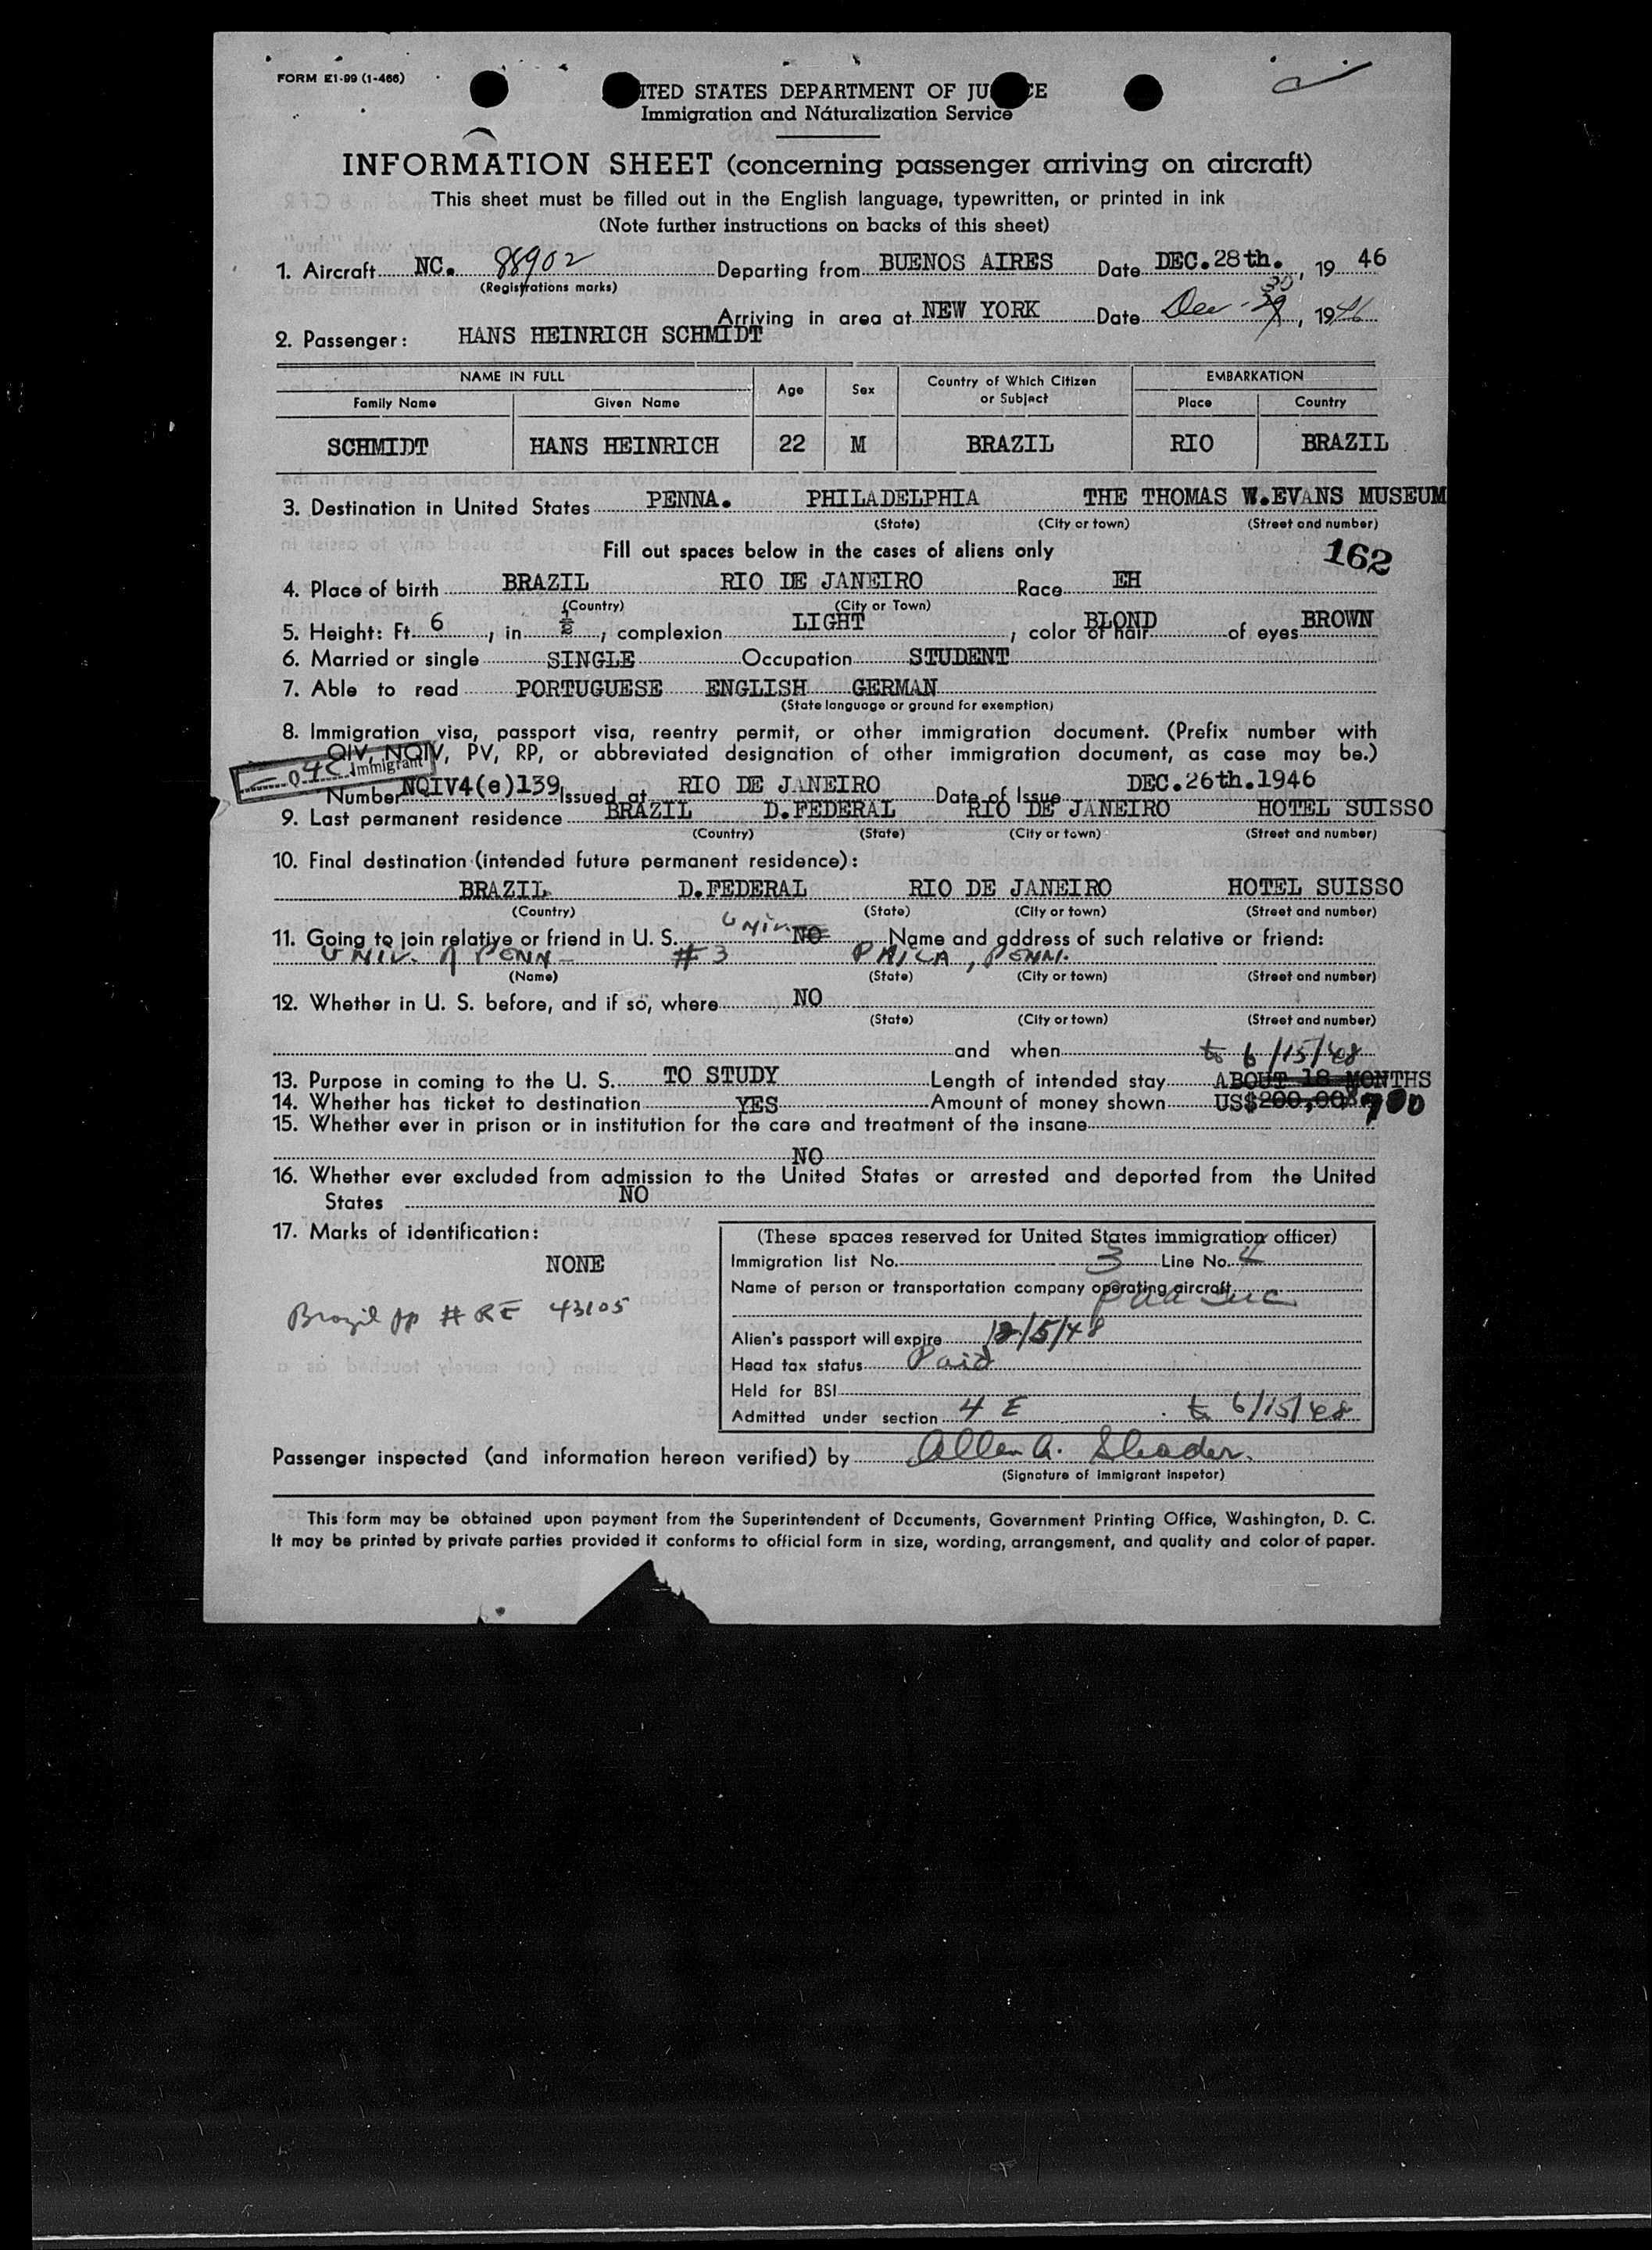 FORM E1-99 (1-466)
ITED STATES DEPARTMENT OF JU CE
Immigration and Naturalization Service
INFORMATION SHEET (concerning passenger arriving on aircraft)
This sheet must be filled out in the English language, typewritten, or printed in ink
(Note further instructions on backs of this sheet)
1. Aircraft NC. 88902 Departing from BUENOS AIRES Date DEC.28th., 19 46
(Registrations marks)
30
Arriving in area at NEW YORK Date Dec - 29, 1946
2. Passenger: HANS HEINRICH SCHMIDT
NAME IN FULL Age Sex Country of Which Citizen or Subject EMBARKATION
Family Name Given Name Place Country
SCHMIDT HANS HEINRICH 22 M BRAZIL RIO BRAZIL
3. Destination in United States PENNA. PHILADELPHIA THE THOMAS W.EVANS MUSEUM
(State) (City or town) (Street and number)
Fill out spaces below in the cases of aliens only
162
4. Place of birth BRAZIL RIO DE JANEIRO Race EH
(Country) (City or Town)
5. Height: Ft. 6, in ½, complexion LIGHT, color of hair BLOND of eyes BROWN
6. Married or single SINGLE Occupation STUDENT
7. Able to read PORTUGUESE ENGLISH GERMAN
(State language or ground for exemption)
8. Immigration visa, passport visa, reentry permit, or other immigration document. (Prefix number with
QIV, NQIV, PV, RP, or abbreviated designation of other immigration document, as case may be.)
Immigrant
Number NQIV4(e)139 Issued at RIO DE JANEIRO Date of Issue DEC.26th.1946
9. Last permanent residence BRAZIL D.FEDERAL RIO DE JANEIRO HOTEL SUISSO
(Country) (State) (City or town) (Street and number)
10. Final destination (intended future permanent residence):
BRAZIL D.FEDERAL RIO DE JANEIRO HOTEL SUISSO
(Country) (State) (City or town) (Street and number)
11. Going to join relative or friend in U. S. Univ. NO Name and address of such relative or friend:
UNIV. of PENN - #3 PHILA, PENN.
(Name) (State) (City or town) (Street and number)
12. Whether in U. S. before, and if so, where NO
(State) (City or town) (Street and number)
and when
to 6/15/48
13. Purpose in coming to the U. S. TO STUDY Length of intended stay ABOUT 18 MONTHS
14. Whether has ticket to destination YES Amount of money shown US$200,00
15. Whether ever in prison or in institution for the care and treatment of the insane
NO
16. Whether ever excluded from admission to the United States or arrested and deported from the United
States NO
17. Marks of identification:
NONE
Brazil pp # RE 43105
(These spaces reserved for United States immigration officer)
Immigration list No. 3 Line No. 4
Name of person or transportation company operating aircraft
paa inc
Alien's passport will expire 12/5/48
Head tax status Paid
Held for BSI
Admitted under section 4 E to 6/15/48
Passenger inspected (and information hereon verified) by Allen G. Shader.
(Signature of Immigrant Inspetor)
This form may be obtained upon payment from the Superintendent of Documents, Government Printing Office, Washington, D. C.
It may be printed by private parties provided it conforms to official form in size, wording, arrangement, and quality and color of paper.